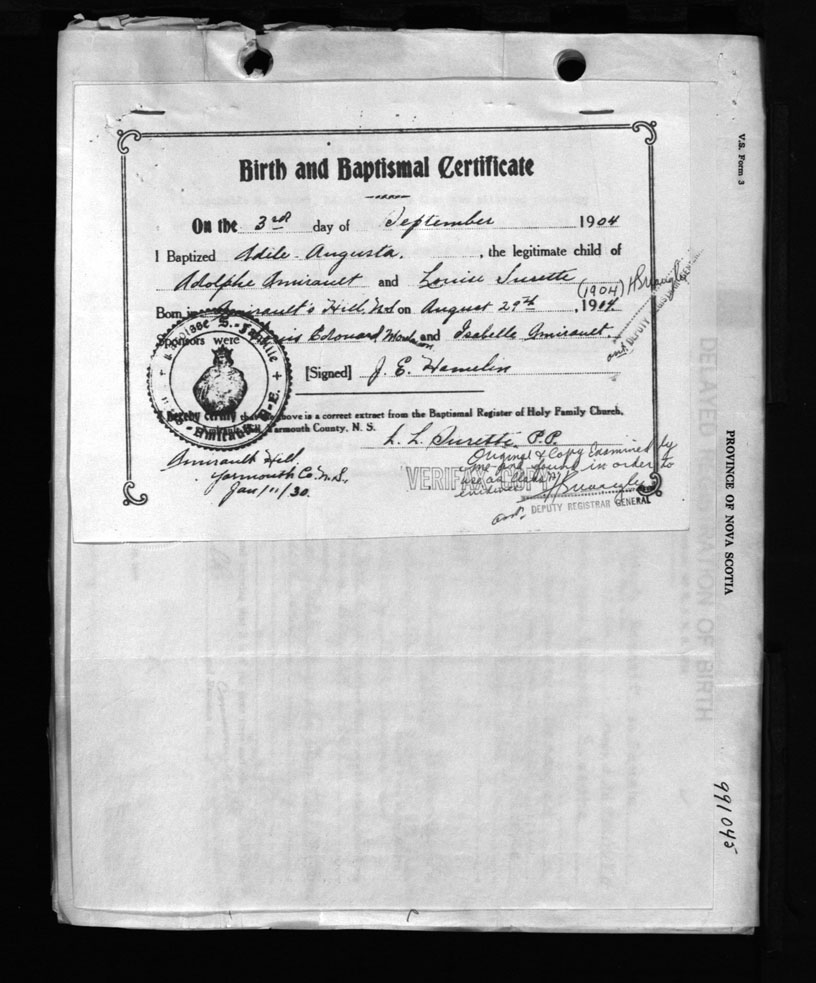 Birth and Baptismal Certificate
On the 3rd day of September 1904
I Baptized Adile Augusta, the legitimate child of
Adolphe Amirault and Louise Surette
(1904)
Born in Amirault's Hill, N.S on August 29th, 1904
Sponsors were Edouard and Isabelle Amirault
[Signed] J. E. Hamelin
I hereby certify that the above is a correct extract from the Baptismal Register of Holy Family Church,
Yarmouth County, N. S.
L. L. Surette P.P.
Amirault Hill
Yarmouth Co. N.S.
Jan/11/30.
Original & Copy Examined by
me and found in order to
use as Class A
evidence
VERIFAX COPY
DEPUTY REGISTRAR GENERAL
DEPUTY
V.S. Form 3
PROVINCE OF NOVA SCOTIA
DELAYED REGISTRATION OF BIRTH
991042